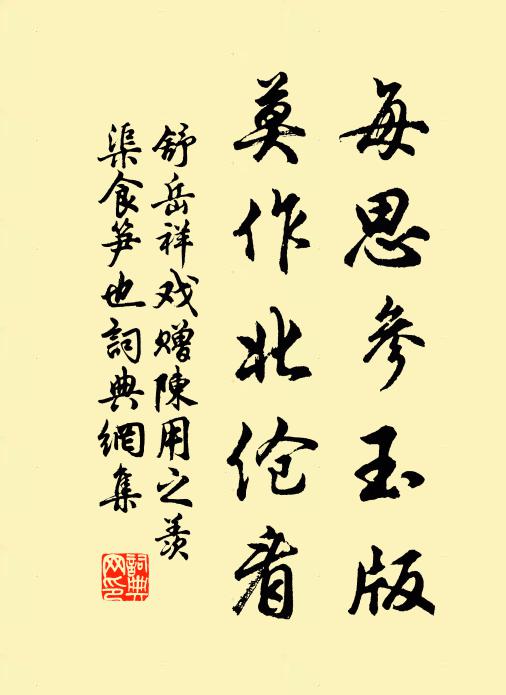 每思參玉版
莫作北伧看
舒岳祥戏赠陳用之羡
渠食笋也詞典網集
詞典网印